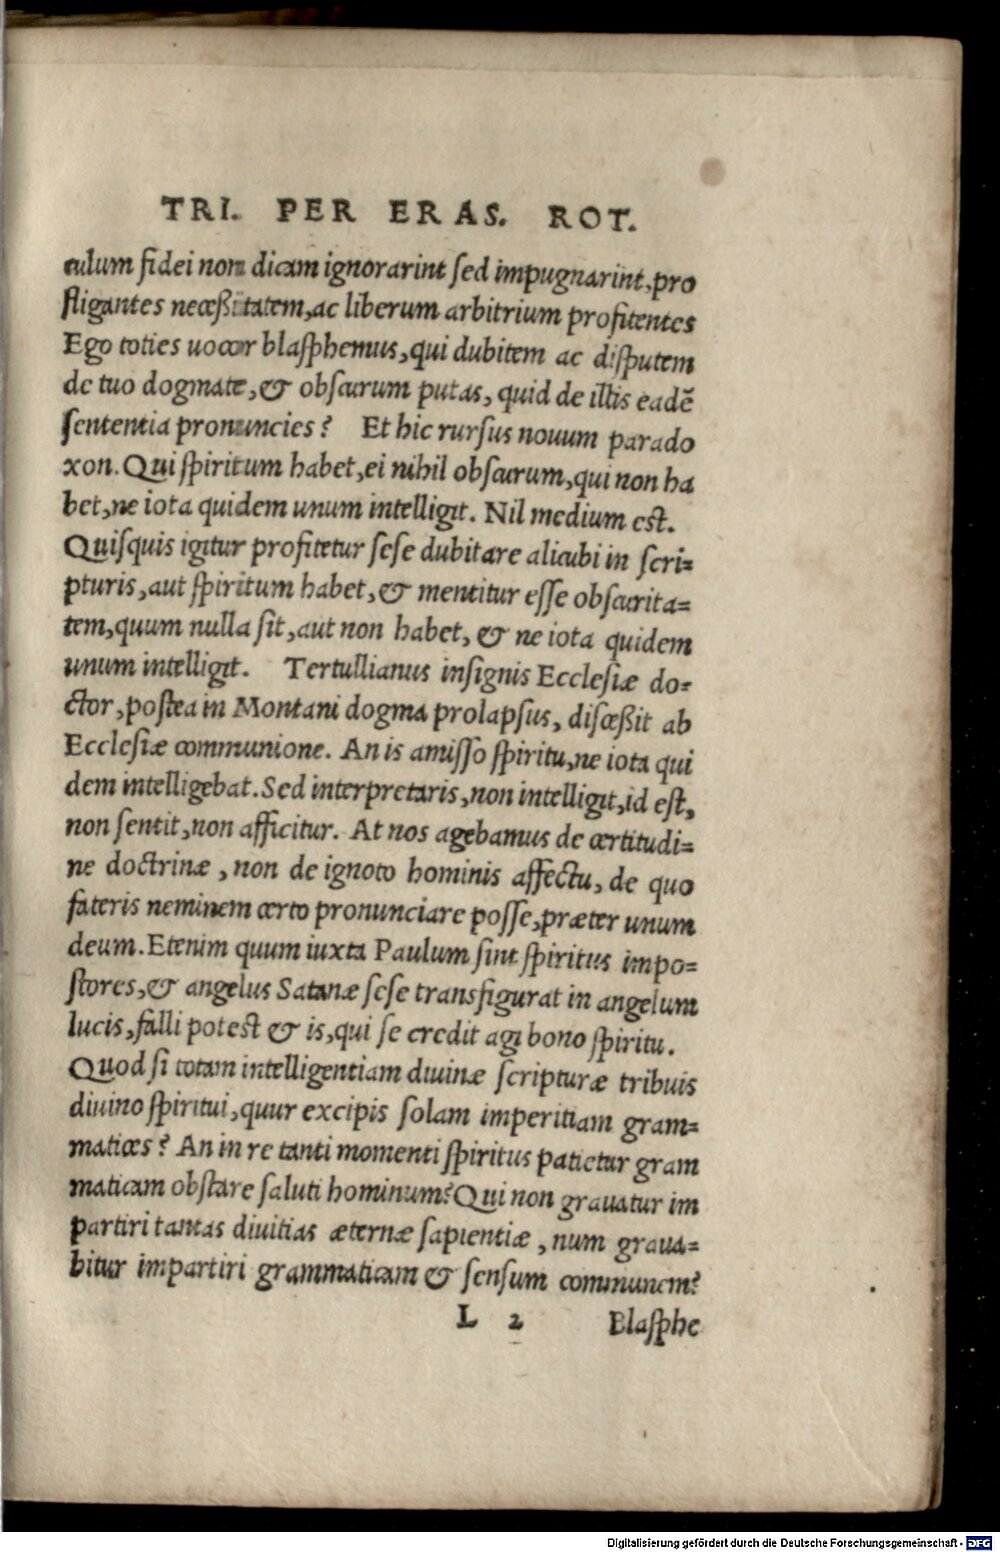 TRI. PER ERAS. ROT.
culum fidei non dicam ignorarint sed impugnarint, pro
fligantes necessitatem, ac liberum arbitrium profitentes
Ego toties uocor blasphemus, qui dubitem ac disputem
de tuo dogmate, & obscurum putas, quid de illis eadē
sententia pronuncies? Et hic rursus nouum parado
xon. Qui spiritum habet, ei nihil obscurum, qui non ha
bet, ne iota quidem unum intelligit. Nil medium est.
Quisquis igitur profitetur sese dubitare alicubi in scri=
pturis, aut spiritum habet, & mentitur esse obscurita=
tem, quum nulla sit, aut non habet, & ne iota quidem
unum intelligit. Tertullianus insignis Ecclesiæ do=
ctor, postea in Montani dogma prolapsus, discessit ab
Ecclesiæ communione. An is amisso spiritu, ne iota qui
dem intelligebat. Sed interpretaris, non intelligit, id est,
non sentit, non afficitur. At nos agebamus de certitudi=
ne doctrinæ, non de ignoto hominis affectu, de quo
fateris neminem certo pronunciare posse, præter unum
deum. Etenim quum iuxta Paulum sint spiritus impo=
stores, & angelus Satanæ sese transfigurat in angelum
lucis, falli potest & is, qui se credit agi bono spiritu.
Quod si totam intelligentiam diuinæ scripturæ tribuis
diuino spiritui, quur excipis solam imperitiam gram=
matices? An in re tanti momenti spiritus patietur gram
maticam obstare saluti hominum? Qui non grauatur im
partiri tantas diuitias æternæ sapientiæ, num graua=
bitur impartiri grammaticam & sensum communem?
L 2 Blasphe
Digitalisierung gefördert durch die Deutsche Forschungsgemeinschaft - DFG